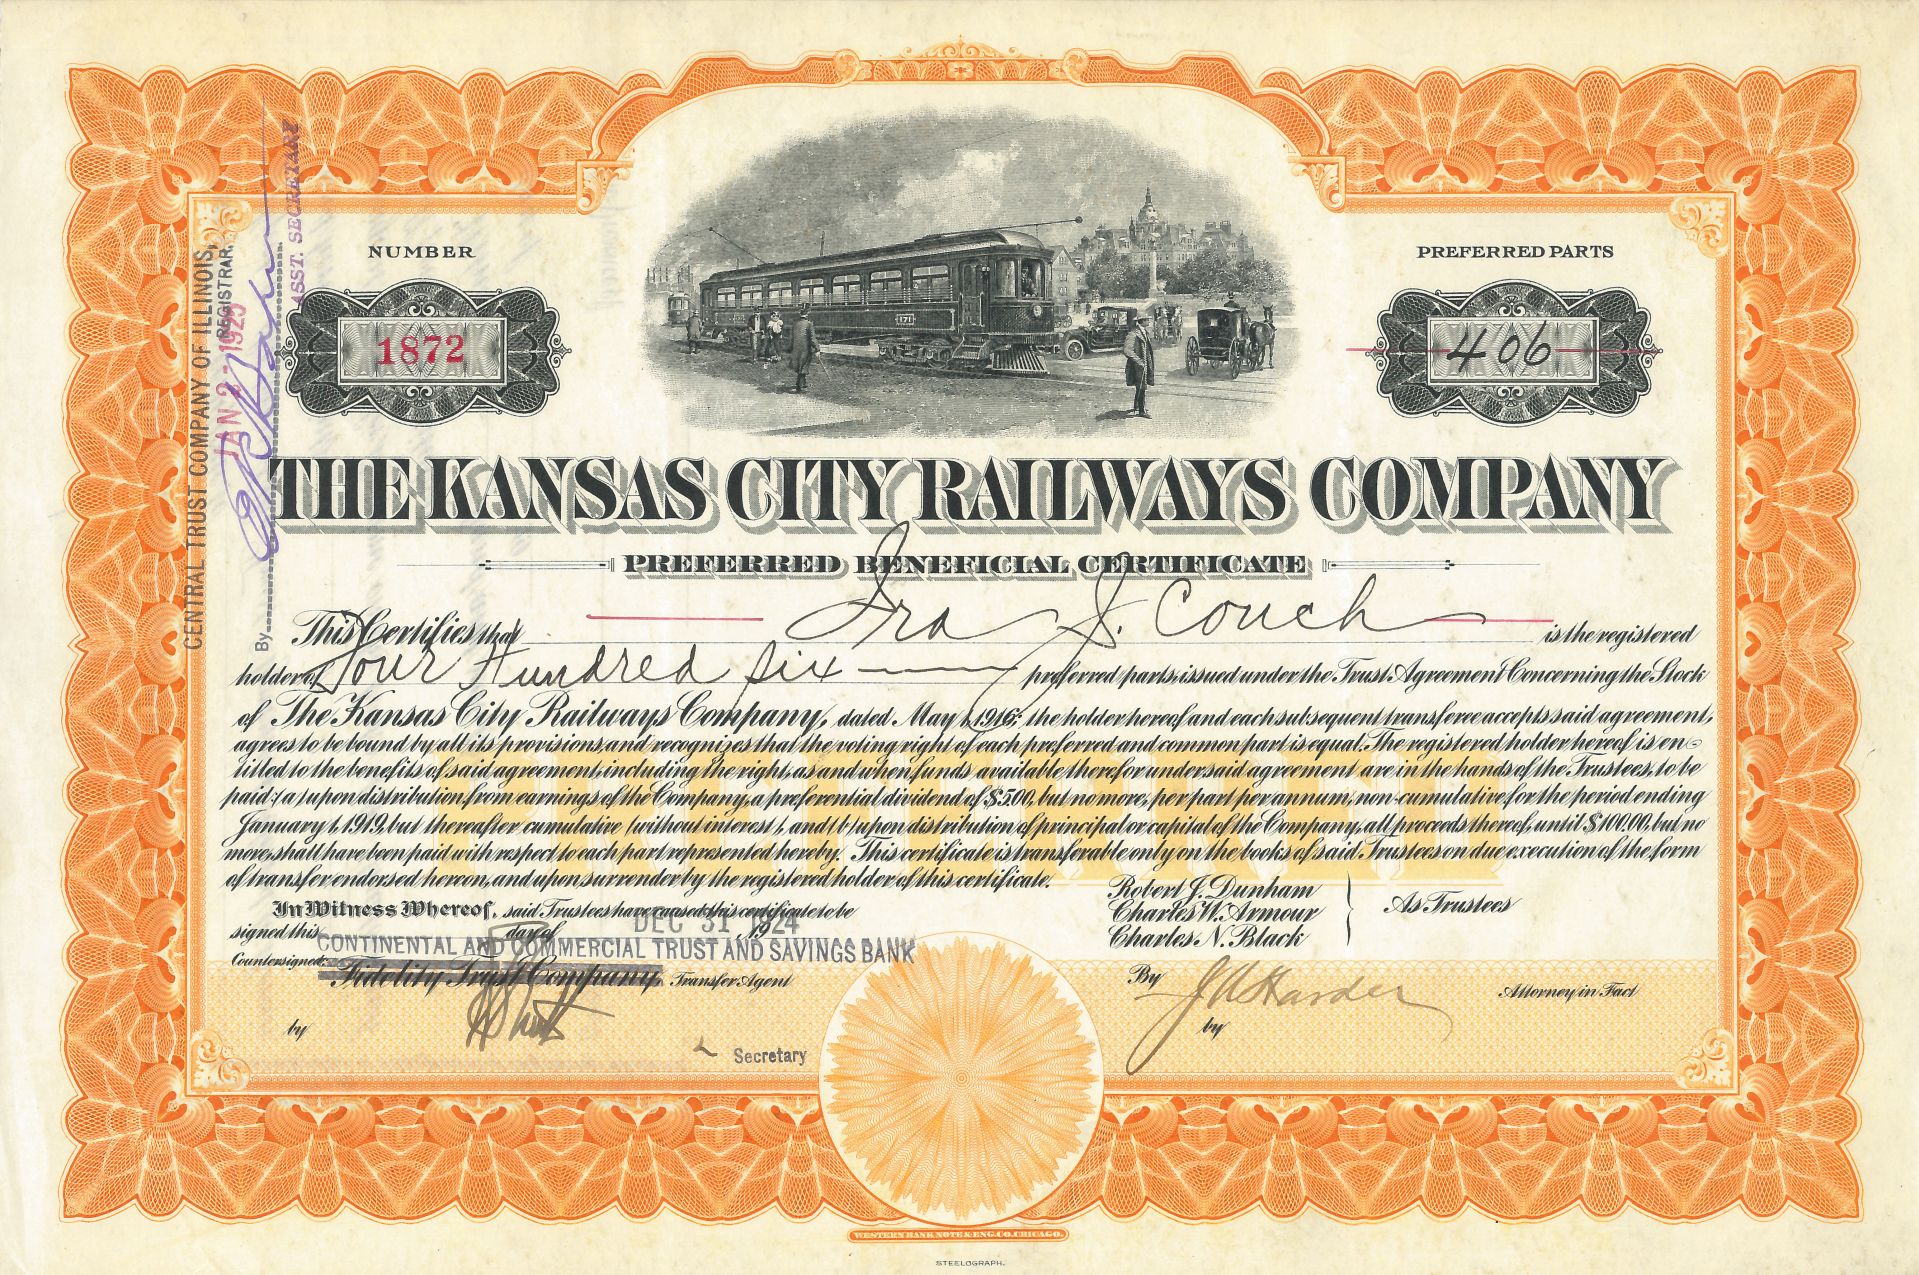 NUMBER
1872
PREFERRED PARTS
406
171
THE KANSAS CITY RAILWAYS COMPANY
PREFERRED BENEFICIAL CERTIFICATE
This Certifies that Ira J. Couch is the registered
holder of Four Hundred Six preferred parts, issued under the Trust Agreement Concerning the Stock
of The Kansas City Railways Company, dated May 1, 1916; the holder hereof and each subsequent transferee accepts said agreement,
agrees to be bound by all its provisions and recognizes that the voting right of each preferred and common part is equal. The registered holder hereof is en-
titled to the benefits of said agreement, including the right, as and when funds available therefor under said agreement are in the hands of the Trustees, to be
paid: (a) upon distribution from earnings of the Company, a preferential dividend of $5.00, but no more, per part per annum, non-cumulative for the period ending
January 1, 1919, but thereafter cumulative (without interest), and (b) upon distribution of principal or capital of the Company, all proceeds thereof, until $100.00, but no
more, shall have been paid with respect to each part represented hereby. This certificate is transferable only on the books of said Trustees on due execution of the form
of transfer endorsed hereon, and upon surrender by the registered holder of this certificate.
In Witness Whereof, said Trustees have caused this certificate to be
signed this day of DEC 31 1924
Robert J. Dunham
Charles W. Armour
Charles N. Black
As Trustees
CONTINENTAL AND COMMERCIAL TRUST AND SAVINGS BANK
Countersigned: Fidelity Trust Company, Transfer Agent
by
Secretary
By J A Harder Attorney in Fact
by
CENTRAL TRUST COMPANY OF ILLINOIS,
REGISTRAR.
JAN 2 - 1925
By
ASST. SECRETARY
WESTERN BANK NOTE & ENG. CO. CHICAGO.
STEELOGRAPH.